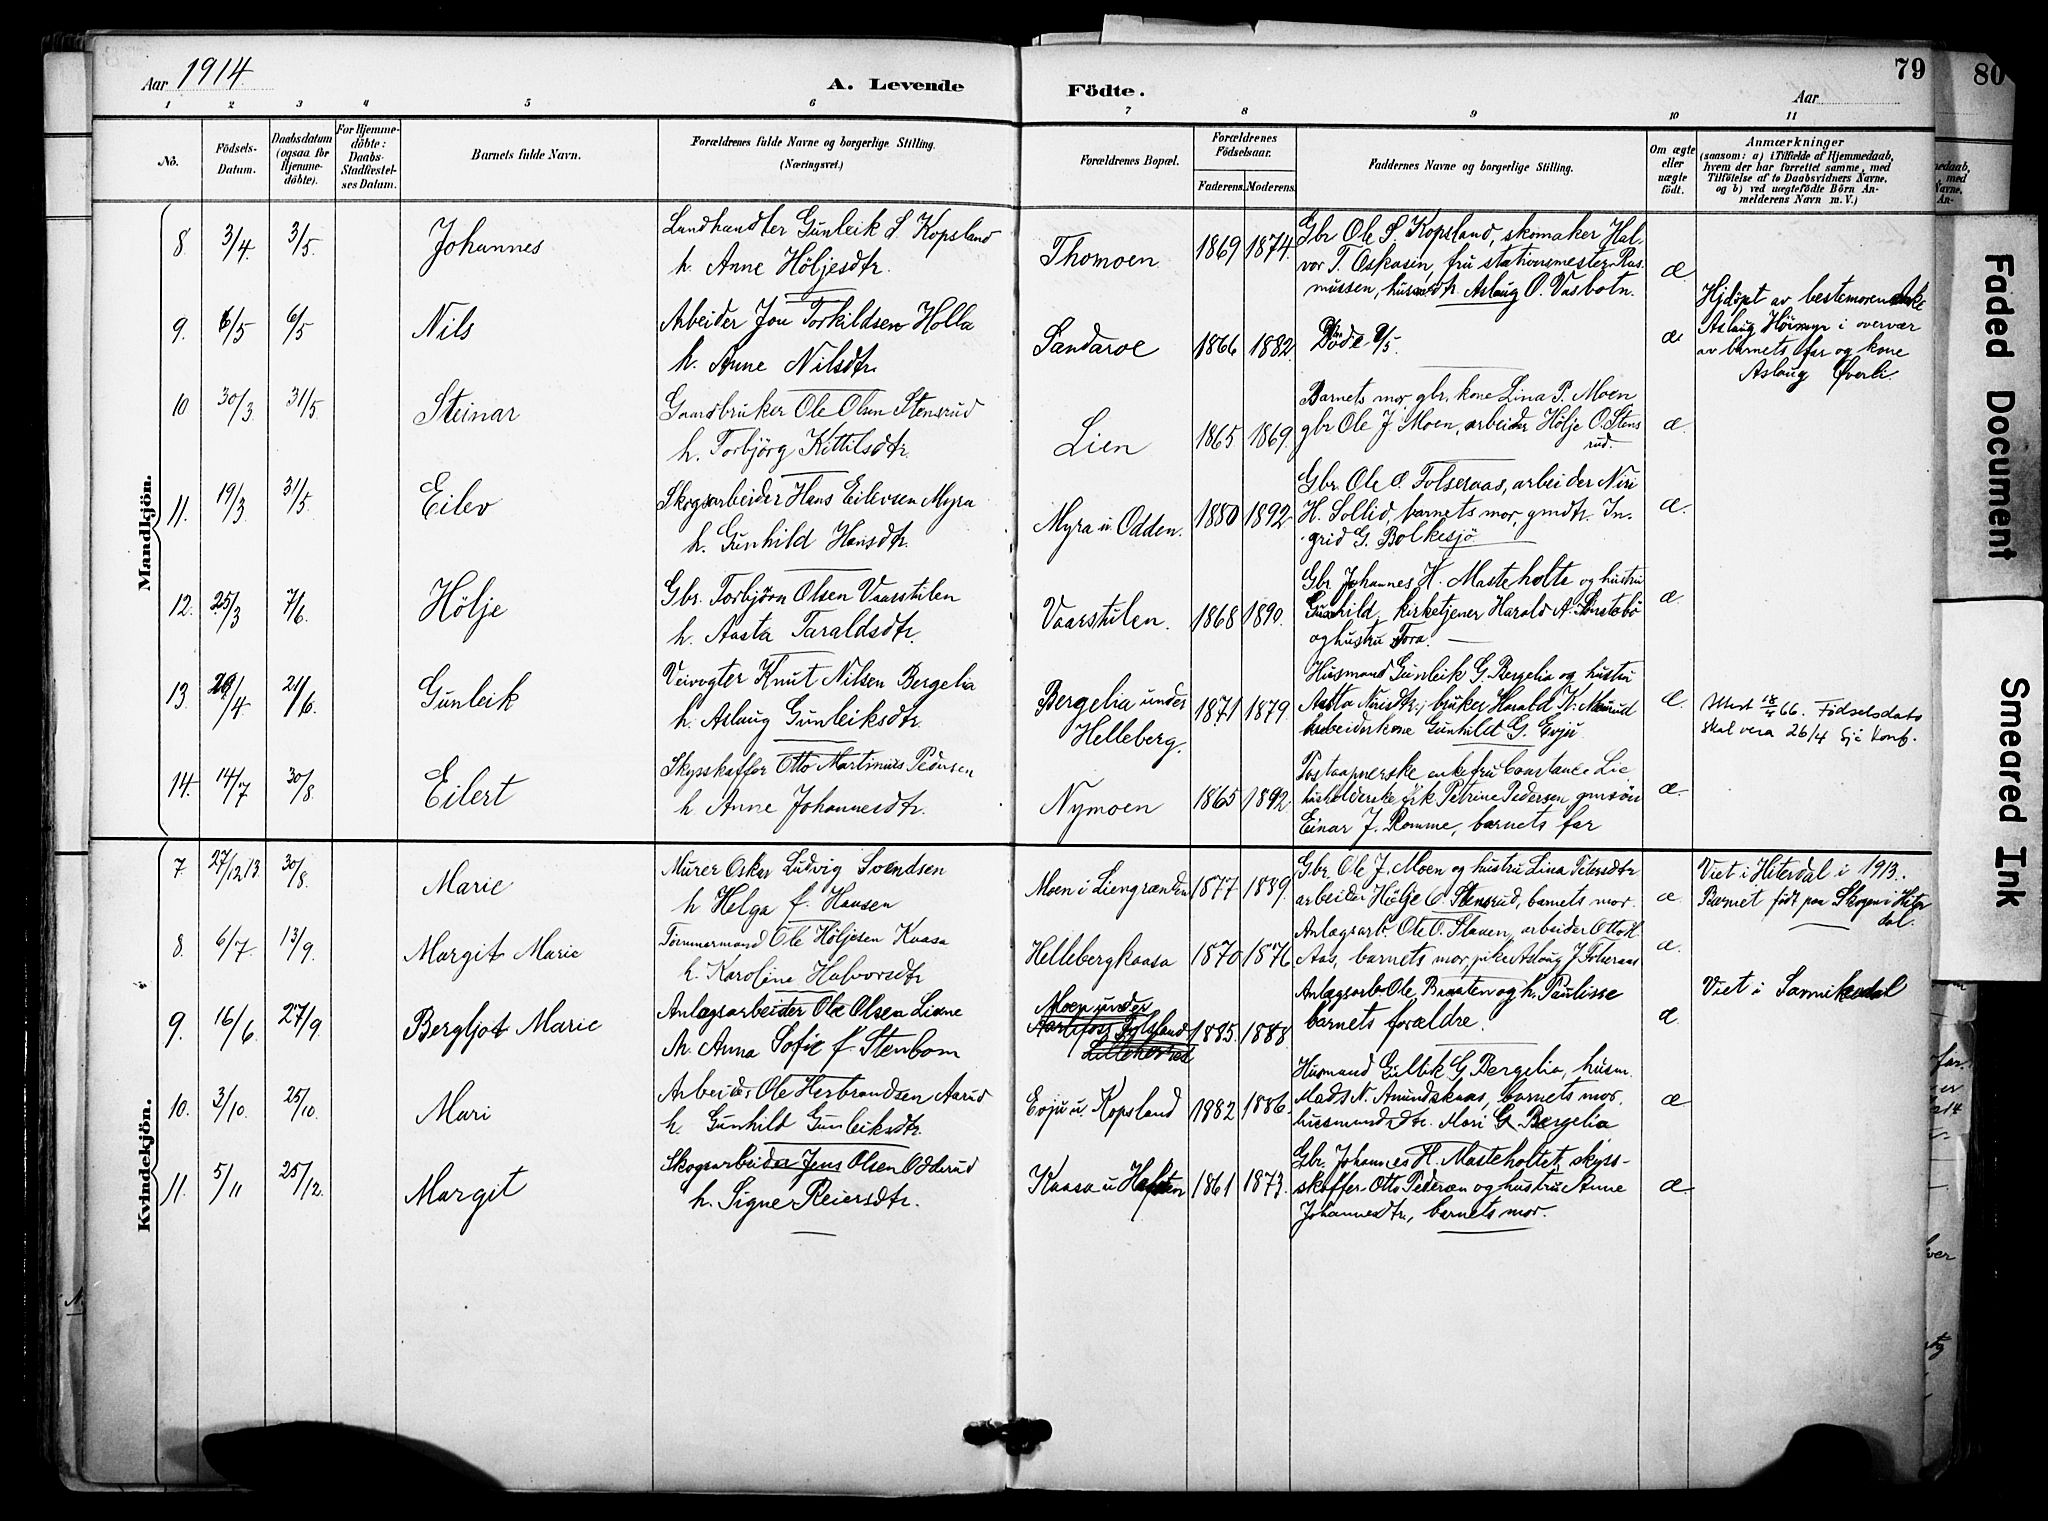 Aar 1914.
A. Levende Födte.
Aar
79
80
1 2 3 4 5 6 7 8 9 10 11
No.
Födsels-Datum.
Daabsdatum (ogsaa for Hjemme-döbte).
For Hjemme-döbte: Daabs-Stadfæstel-ses Datum.
Barnets fulde Navn.
Forældrenes fulde Navne og borgerlige Stilling.
(Næringsvei.)
Forældrenes Bopæl.
Forældrenes Födselsaar.
Faderens. Moderens.
Faddernes Navne og borgerlige Stilling.
Om ægte eller uægte födt.
Anmærkninger
(saasom: a) i Tilfælde af Hjemmedaab,
hvem der har forrettet samme, med
Tilföielse af to Daabsvidners Navne,
og b) ved uegtefödte Börn An-
melderens Navn m. V.)
Mandkjön.
8 3/4. 3/5. Johannes
Landhandler Gunleik S Kopsland
h. Anne Höljesdtr.
Thomoen 1869 1874.
Gbr Ole S. Kopsland, skomaker Hal-
vor T. Oskasin, fru stationsmester Ras-
mussen, husmdtr. Aslaug O. Vasbotn.
æ
9. 6/5 6/5 Nils
Arbeider Jon Torkildsen Holla
h. Anne Nilsdtr.
Sandaroe 1866 1882
Döde 9/5.
æ
Hjdöpt av bestemoren
Aslaug Höimyr i overvær
av barnets far og kone
Aslaug Överli.
10 30/3. 31/5. Steinar
Gaardbruker Ole Olsen Stensrud
h. Torbjörg Kittilsdtr.
Lien 1865 1869.
Barnets mor gbr. kone Lina P. Moen
gbr Ole J. Moen, arbeider Hölje O. Stens
rud.
æ.
11. 19/3. 31/5. Eilev
Skogsarbeider Hans Eilevsen Myra
h. Gunhild Hansdtr.
Myra u. Odden. 1880 1892.
Gbr. Ole O. Folseraas, arbeider Niri
H. Sollid, barnets mor, gmdtr. In-
grid G. Bolkesjö.
æ.
12. 25/3 7/6. Hölje
Gbr. Torbjörn Olsen Vaarstilen
h. Aasta Taraldsdtr.
Vaarstilen. 1868 1890.
Gbr. Johannes H. Masteholte og hustru
Gunhild, kirketjener Harald A.
og hustru Tora.
æ.
13. 29/4 21/6. Gunleik
Veivogter Knut Nilsen Bergelia
h. Aslaug Gunleiksdtr.
Bergelia under
Helleberg. 1871 1879.
Husmand Gunleik G. Bergelia og hustru
Aasta Niridtr.; bruker Harald K.
arbeiderkone Gunhild G. Evju.
æ.
66. Födselsdato
skal vera 26/4
14. 14/7 30/8. Eilert
Skysskaffer Otto Martinius Pedersen
h Anne Johannesdtr.
Nymoen 1865 1892.
Postaapnerske enkefru Constance Lie,
husholderske frk Petrine Pedersen gmsön
Einar J. Romme, barnets far
æ.
Kvindekjön.
7 27/12 13. 30/8. Marie
Murer Oskar Ludvig Svendsen
h Helga f. Hansen
Moen i Liengrænden 1877 1889.
Gbr. Ole J. Moen og hustru Lina Petersdtr
arbeider Hölje O. Stensrud, barnets mor.
æ
Viet i Hiterdal i 1913.
Barnet födt paa Skogen i Hiter
dal.
8. 6/7. 13/9. Margit Marie
Tömmermand Ole Höljesen Kaasa
h. Karoline Halvorsdtr
Hellebergkaasa 1870 1876
Anlægsarb. Ole O. Slaaen, arbeider Otto H.
Aas, barnets mor, pike Aslaug J. Folseraas
æ.
9. 16/6. 27/9. Bergljot Marie
Anlægsarbeider Ole Olsen Liane
h. Anna Sofie f. Stenbom
Moen under
1885. 1888.
Anlægsarb. Ole Braaten og h. Paulisse
barnets forældre.
æ.
Viet i
10. 3/10. 25/10. Mari
Arbeider Ole Herbrandsen Aarud
h. Gunhild Gunleiksdtr.
Evju u. Kopsland 1882 1886.
Husmand Gullik G Bergelia, husm.
Mads N. Amundskaas, barnets mor,
husmandsdtr. Mari G. Bergelia
æ
11. 5/11 25/12. Margit
Skogsarbeider Jens Olsen Odderud
h. Signe Reiersdtr.
Kaasa u Haften 1861 1873.
Gbr. Johannes H. Masteholtet, skyss-
skaffer Otto Pedersen og hustru Anne
Johannesdtr., barnets mor.
æ.
Faded Document
Smeared Ink